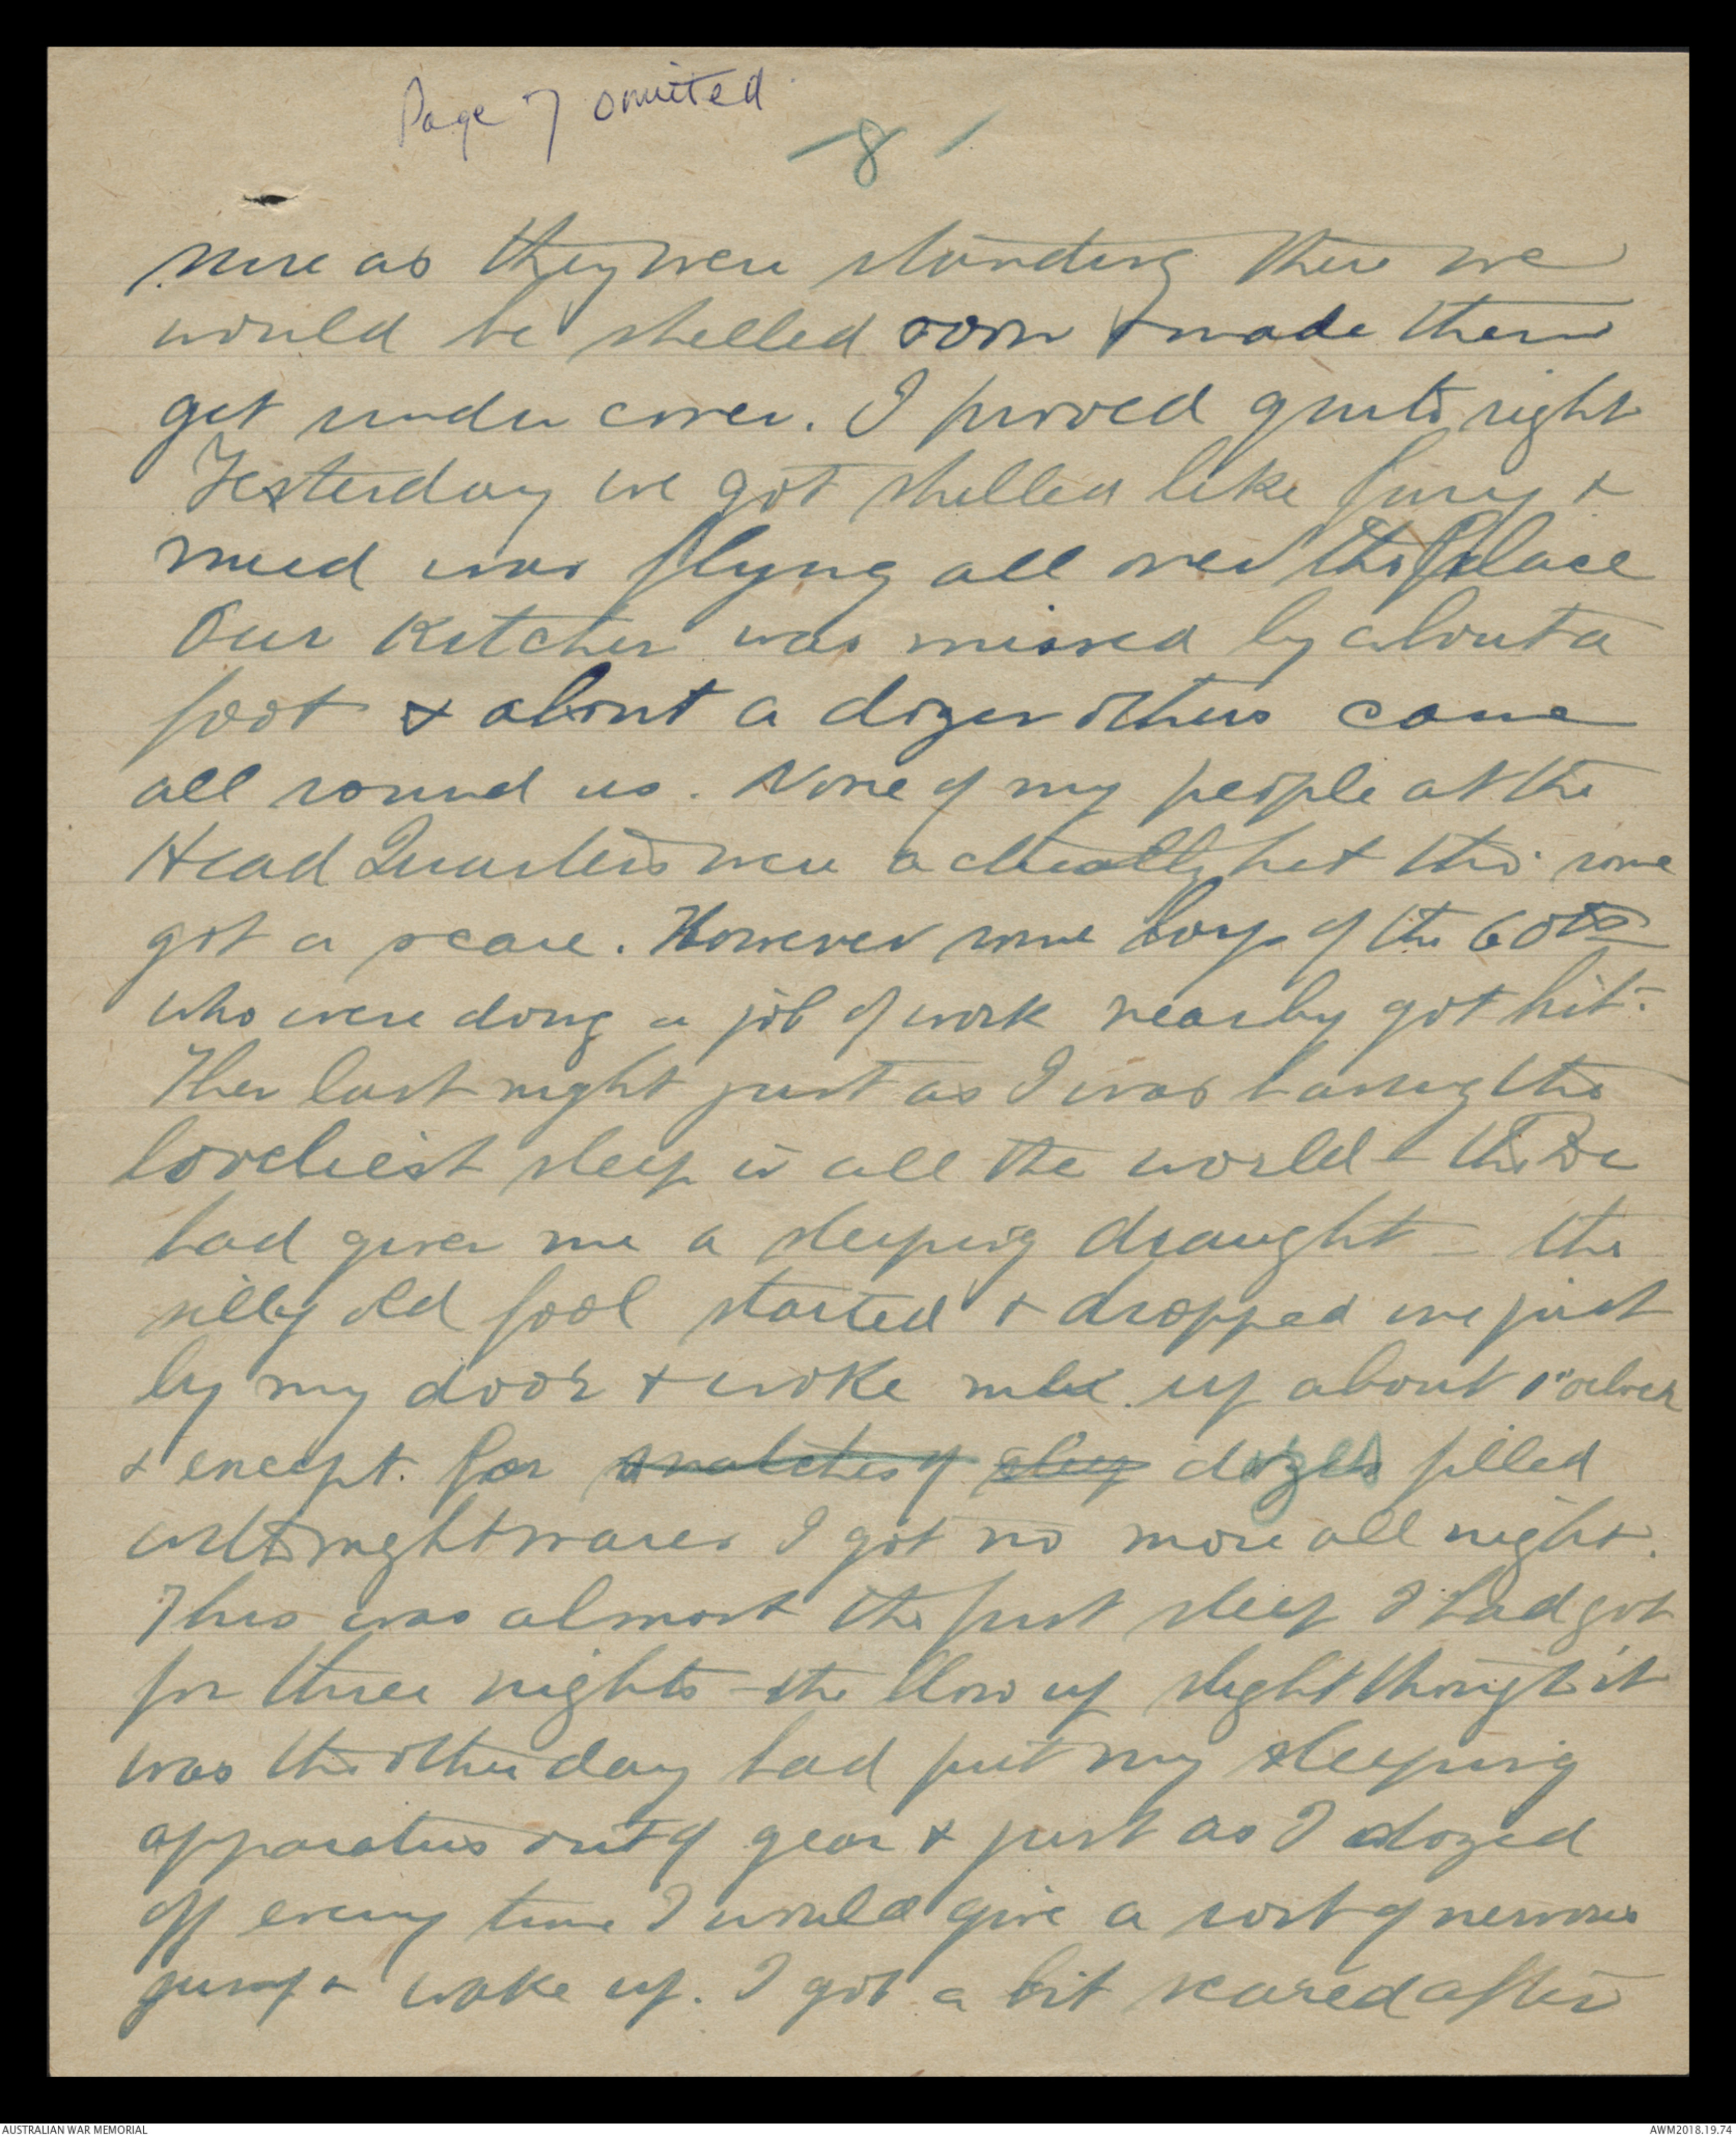 Page 7 omitted
- 8 -
sure as they were standing there we
would be shelled soon & made them
get under cover. I proved quite right
Yesterday we got shelled like fury &
mud was flying all over the place
Our Kitchen was missed by about a
foot & about a dozen others came
all round us. None of my people at the
Head Quarters were actually hit tho' some
got a scare. However some boys of the 60th
who were doing a job of work nearby got hit.
Then last night just as I was having the
loveliest sleep in all the world - the Dr
had given me a sleeping draught - the
silly old fool started & dropped one just
by my door & woke me up about 1 oclock
& except for snatches of sleep dozes filled
with nightmares I got no more all night.
This was almost the first sleep I had got
for three nights - the blow up slight though it
was the other day had put my sleeping
apparatus out of gear & just as I dozed
off every time I would give a sort of nervous
jump & wake up. I got a bit scared after
AUSTRALIAN WAR MEMORIAL
AWM2018.19.74